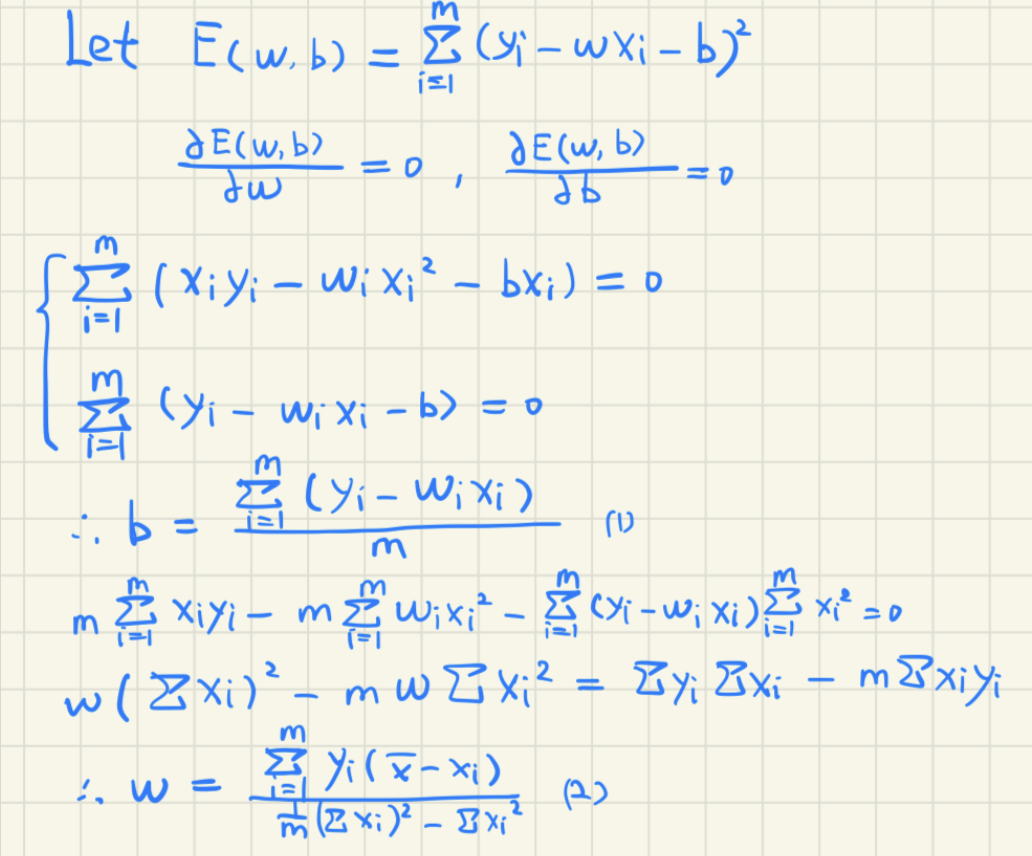 Let E(w, b) = \sum_{i=1}^{m} (y_i - w x_i - b)^2
\frac{\partial E(w, b)}{\partial w} = 0 , \frac{\partial E(w, b)}{\partial b} = 0
\sum_{i=1}^{m} (x_i y_i - w_i x_i^2 - b x_i) = 0
\sum_{i=1}^{m} (y_i - w_i x_i - b) = 0
\therefore b = \frac{\sum_{i=1}^{m} (y_i - w_i x_i)}{m} (1)
m \sum_{i=1}^{m} x_i y_i - m \sum_{i=1}^{m} w_i x_i^2 - \sum_{i=1}^{m} (y_i - w_i x_i) \sum_{i=1}^{m} x_i^2 = 0
w (\sum x_i)^2 - m w \sum x_i^2 = \sum y_i \sum x_i - m \sum x_i y_i
\therefore w = \frac{\sum_{i=1}^{m} y_i (\overline{x} - x_i)}{\frac{1}{m} (\sum x_i)^2 - \sum x_i^2} (2)